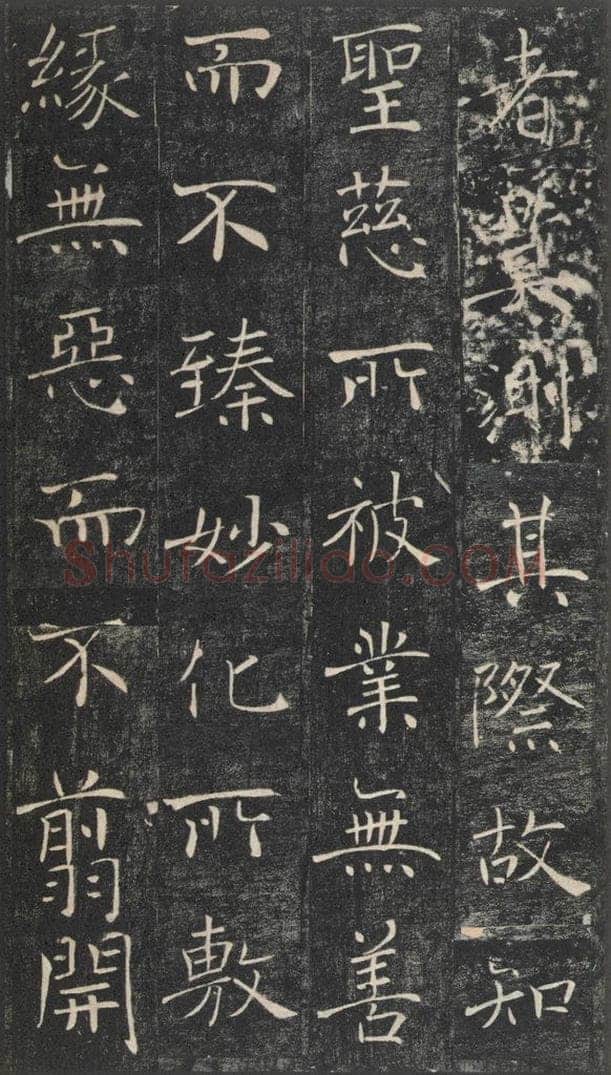 者莫測其際故知
聖慈所被業無善
而不臻妙化所敷
緣無惡而不翦開
Shufaziliao.COM